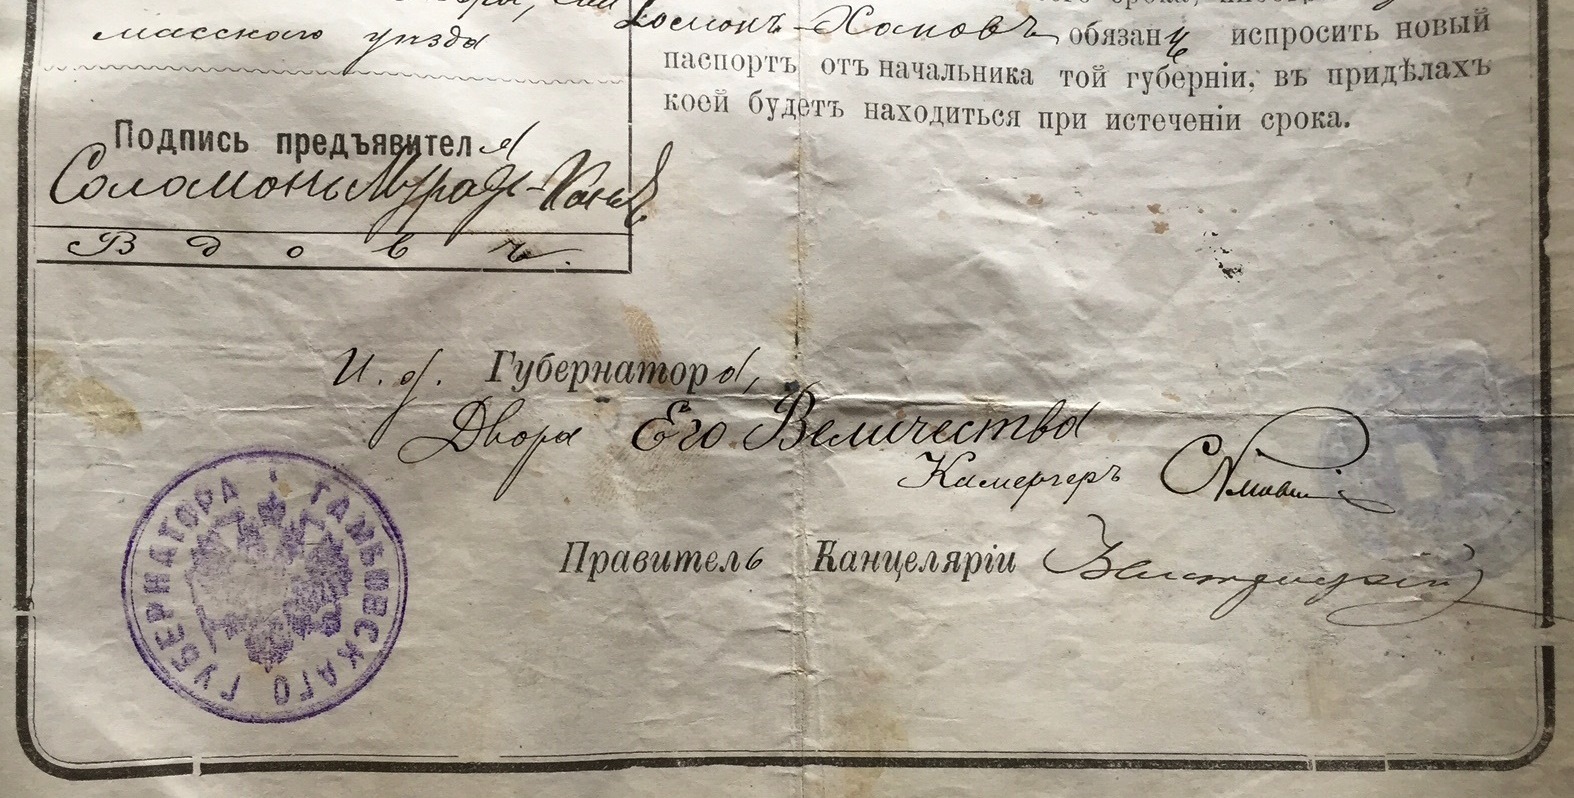 масскаго уѣзда
Хановъ обязанъ испросить новый
паспортъ отъ начальника той губерніи, въ придѣлахъ
коей будетъ находиться при истеченіи срока.
Подпись предъявителя
Соломонъ Мурадъ-Ханъ
Вдовъ.
И. д. Губернатора,
Двора Его Величества
Камергеръ
Правитель Канцеляріи
ТАМБОВСКАГО ГУБЕРНАТОРА